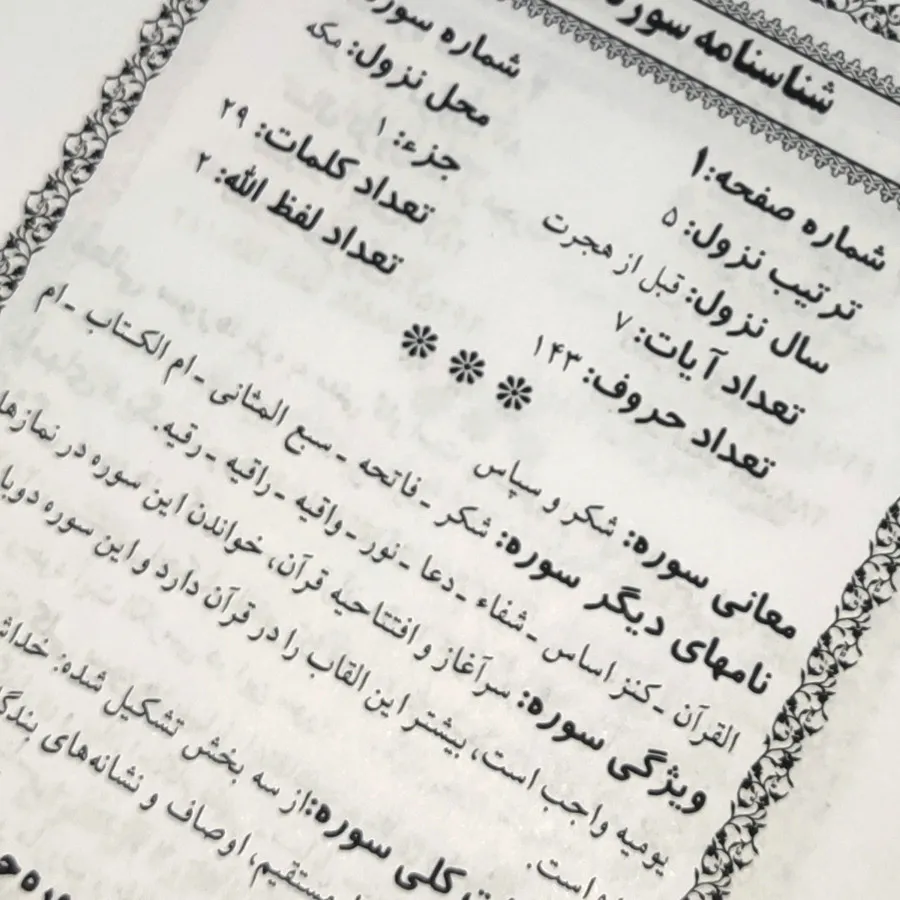 شناسنامه سوره
شماره صفحه: ۱
ترتیب نزول: ۵
سال نزول: قبل از هجرت
تعداد آیات: ۷
تعداد حروف: ۱۴۳
شماره سوره
محل نزول: مکه
جزء: ۱
تعداد کلمات: ۲۹
تعداد لفظ الله: ۲
معانی سوره: شکر و سپاس
نامهای دیگر سوره: شکر ـ فاتحه ـ سبع المثانی ـ ام الکتاب ـ ام
القرآن ـ کنز اساس ـ شفاء ـ دعا ـ نور ـ واقیه ـ راقیه ـ رقیه.
ویژگی سوره: سرآغاز و افتتاحیه قرآن، خواندن این سوره در نمازها
یومیه واجب است، بیشتر این القاب را در قرآن دارد و این سوره
است.
کلی سوره: از سه بخش تشکیل شده:
مستقیم، اوصاف و نشانه‌های